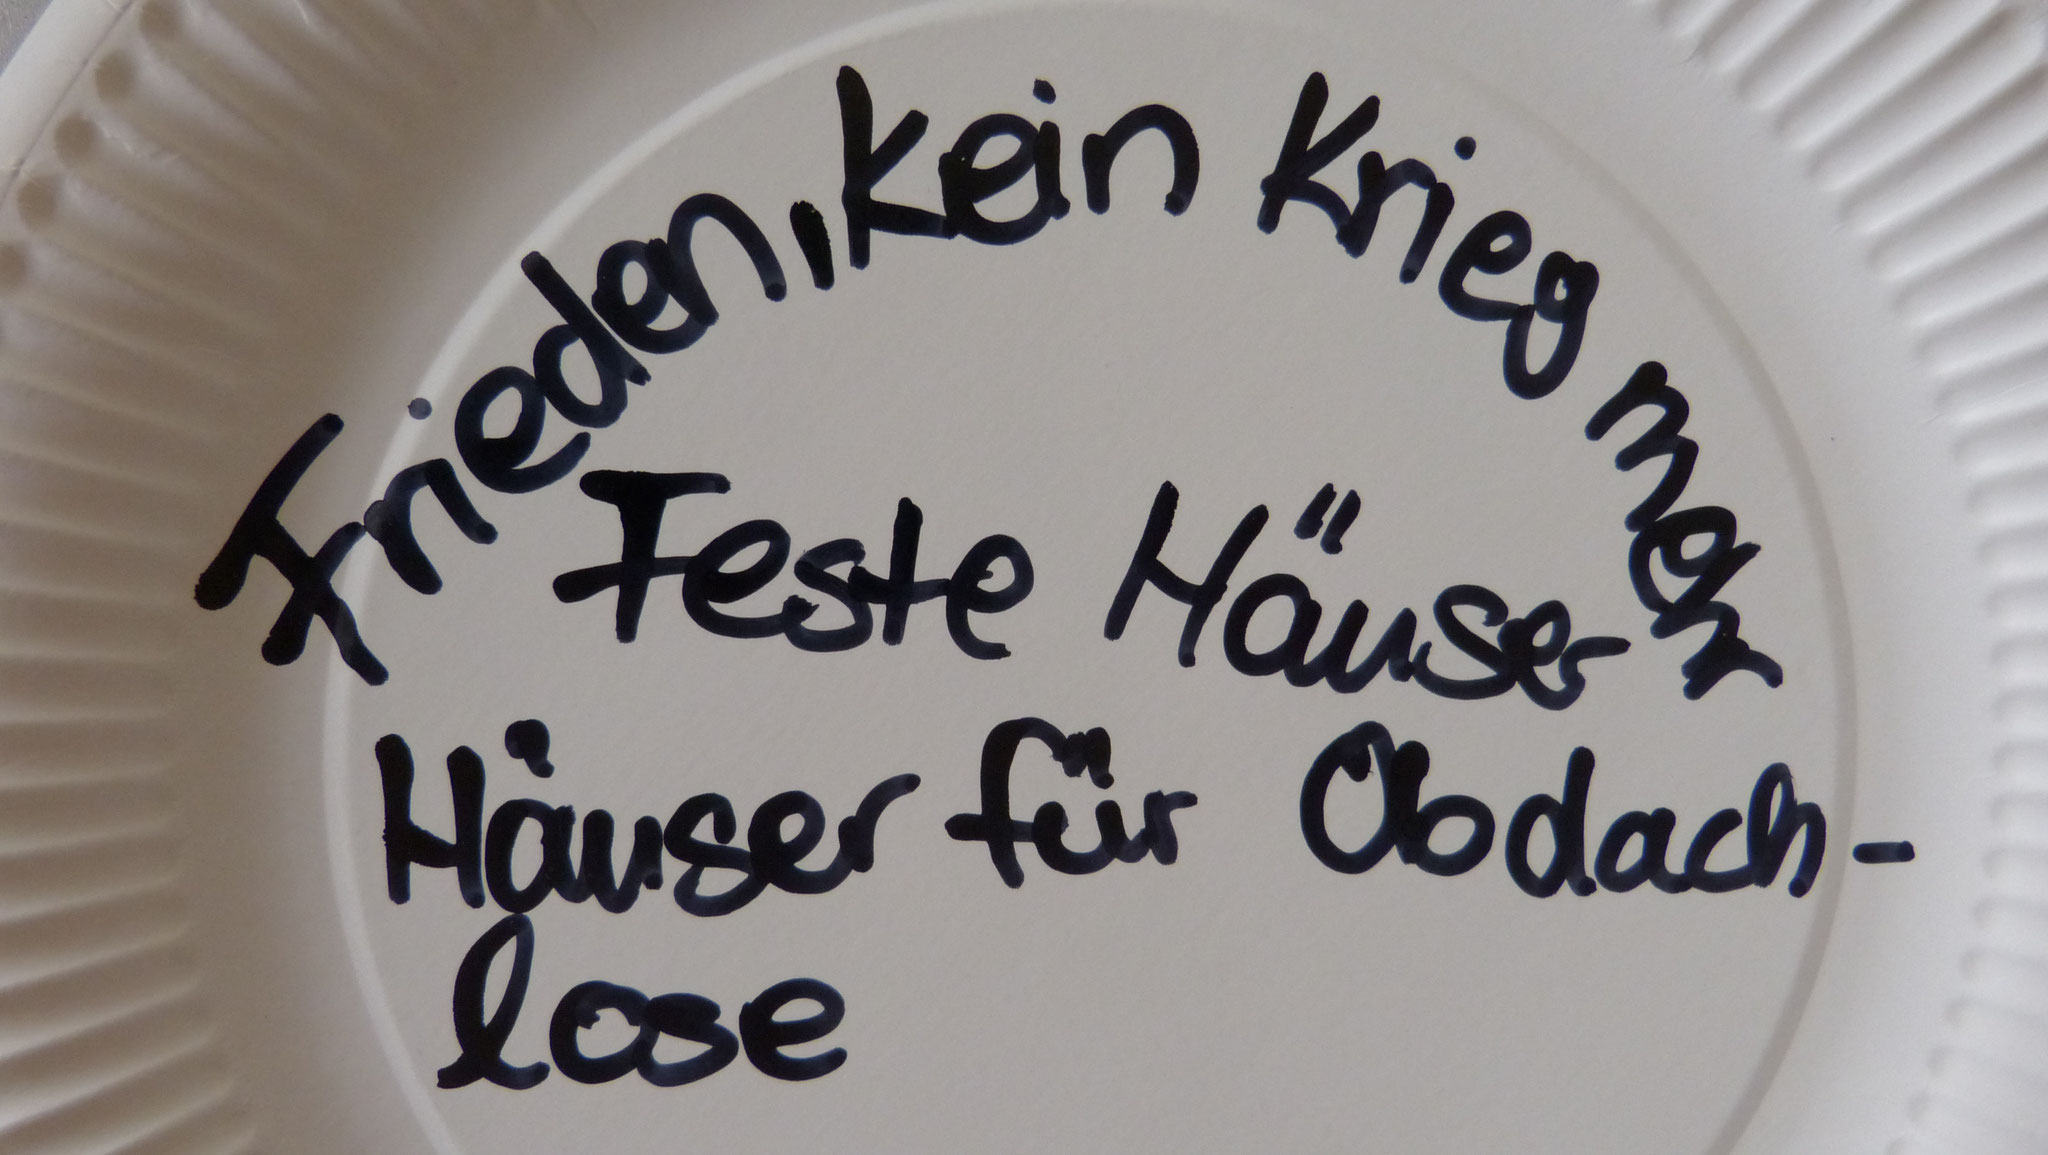 Frieden, kein Krieg mehr
Feste Häuser
Häuser für Obdach-
lose